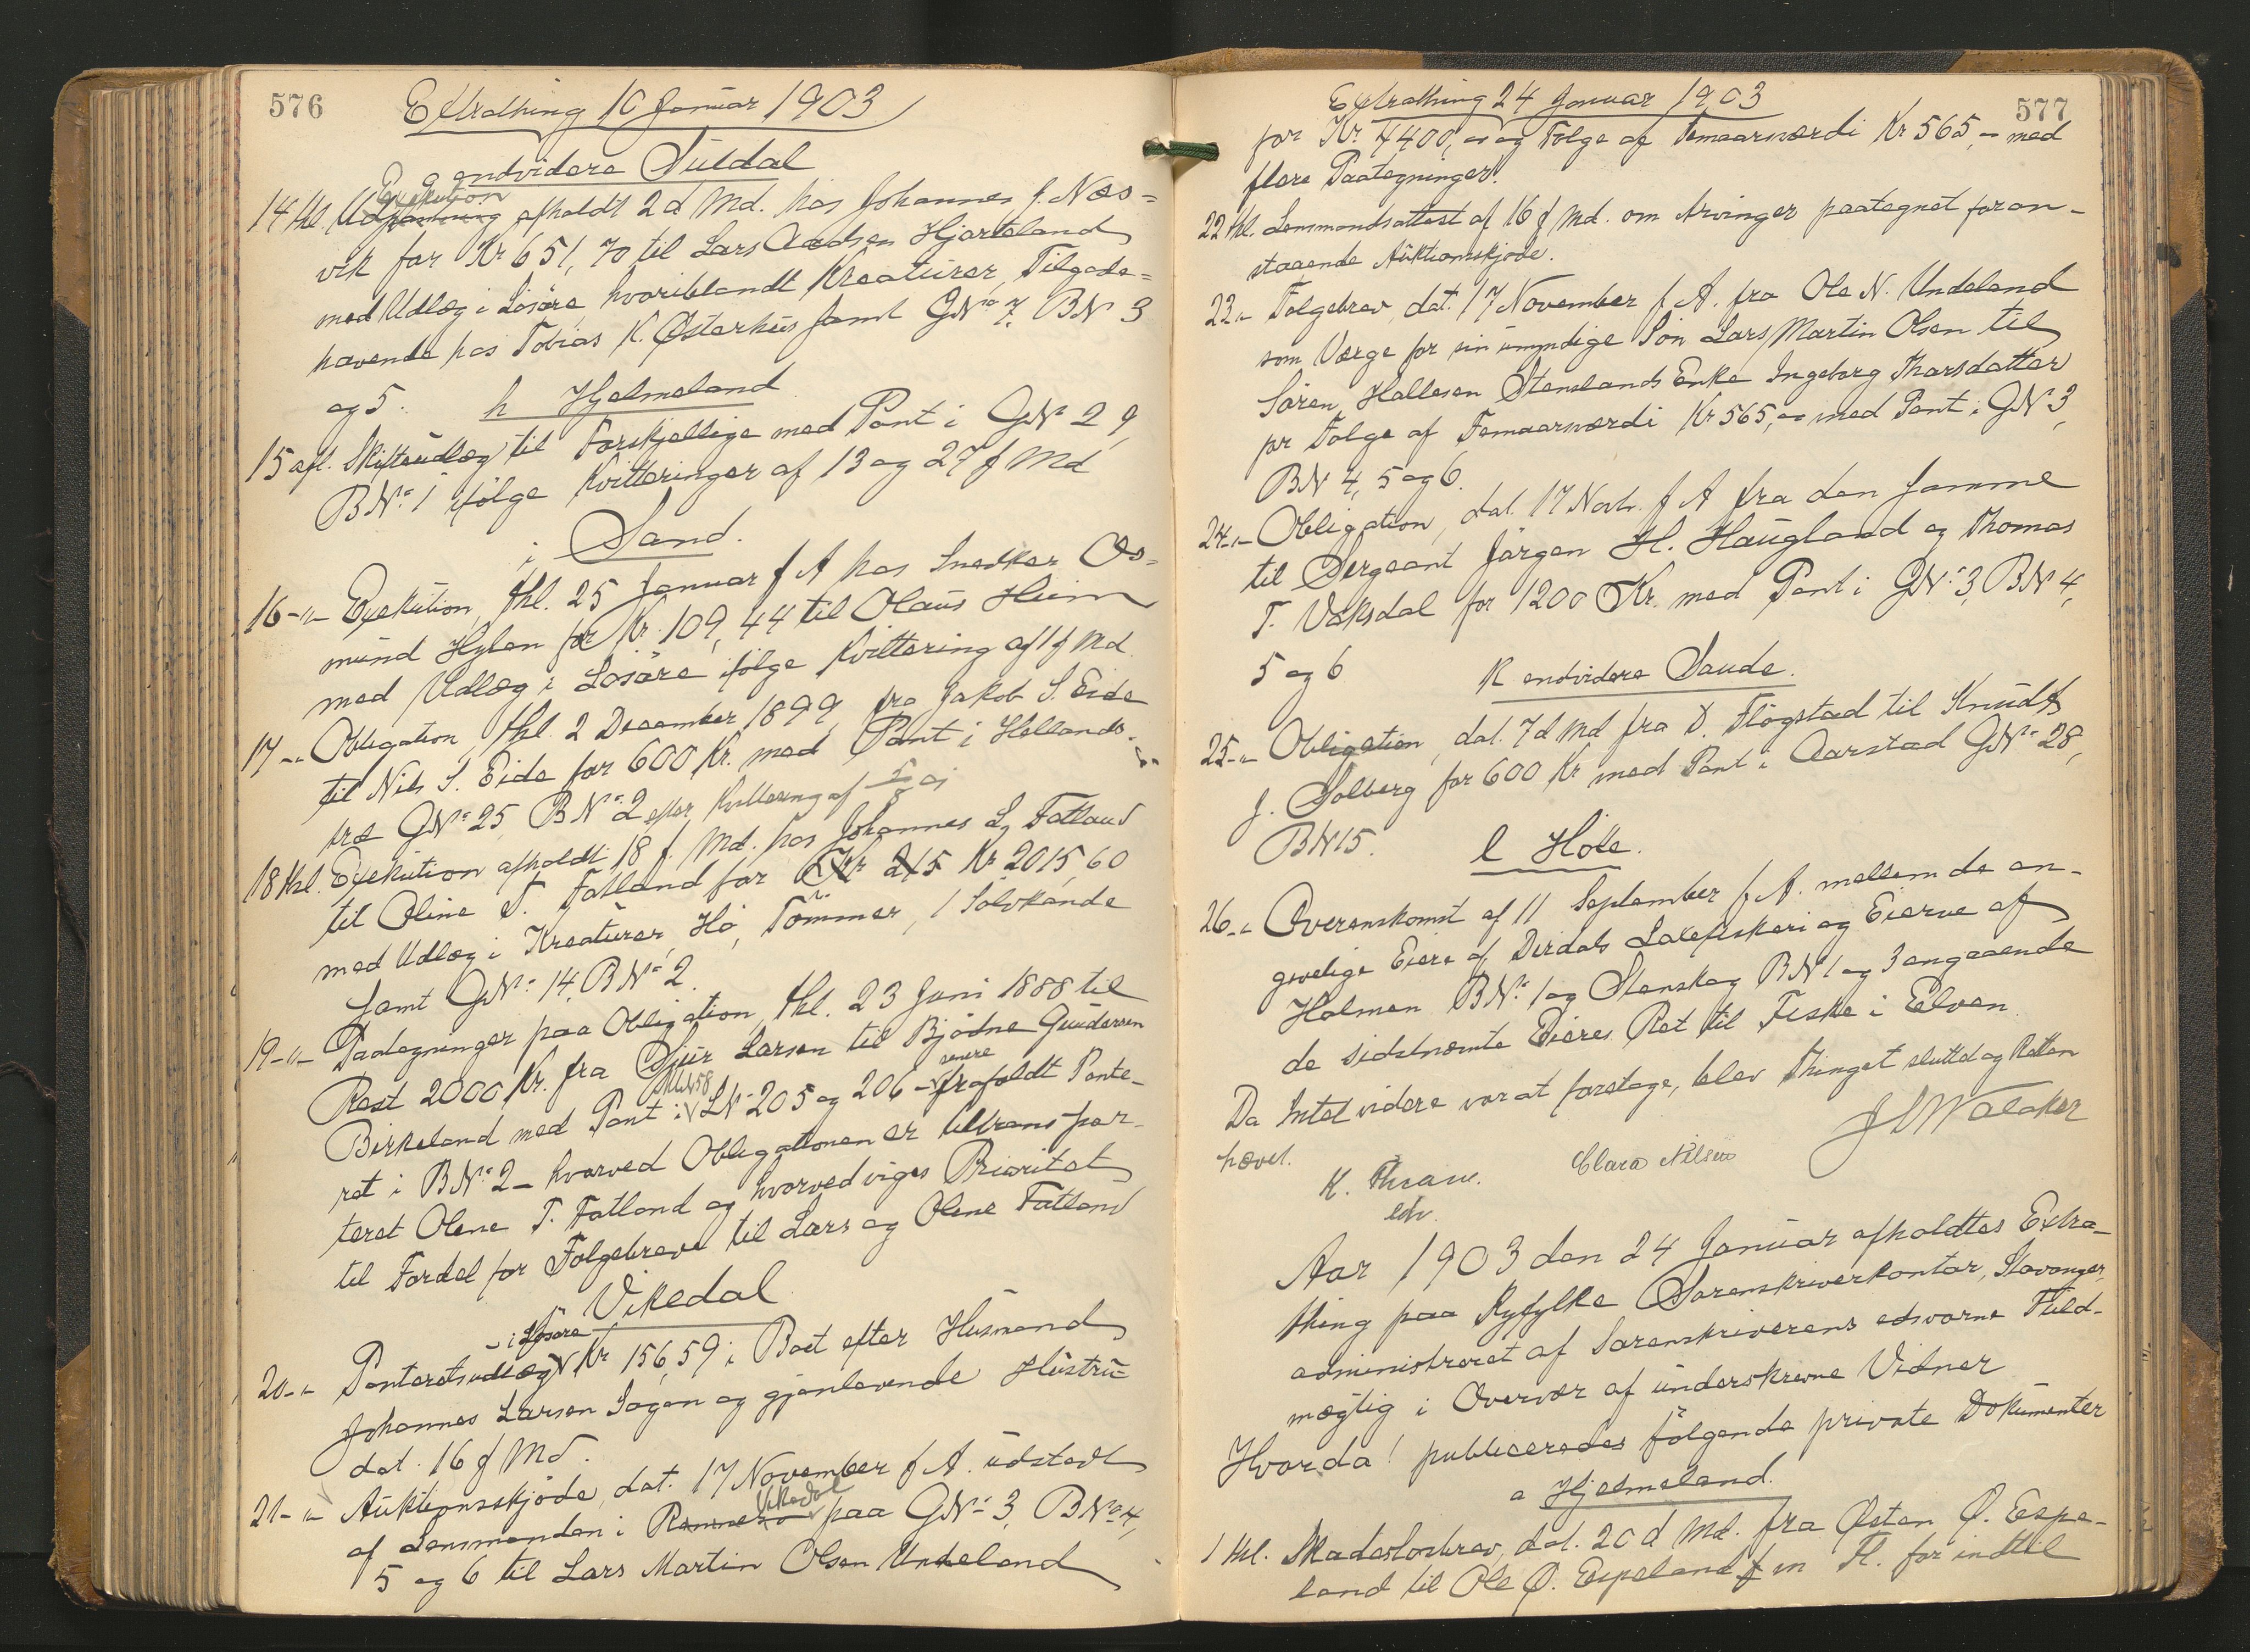 576
Extrathing 10 Januar 1903
g endvidere Suldal
14 thl. Udpantning Exekution afholdt 2 d Md. hos Johannes J. Næs=
vik for Kr 651,70 til Lars Aadsen Hjorteland
med Udlæg i Løsøre hvoriblandt Kreaturer, Tilgode=
havende hos Tobias K. Østerhus samt GNo 7 BN 3
og 5.
h Hjelmeland
15 afl. Skifteudlæg til Forskjellige med Pant i GNo 29,
BNo 1 ifølge Kvitteringer af 13 og 27 f Md
i Sand.
16 -"- Exekution, thl. 25 Januar f A hos Snedker Os=
mund Hylen for Kr. 109,44 til Olaus Heim
med Udlæg i Løsøre ifølge Kvittering af 1 f Md.
17 -"- Obligation, thl. 2 December 1899 fra Jakob S. Eide
til Nils S. Eide for 600 Kr. med Pant i Hellands-
træ GNo 25, BNo 2 efter Kvittering af
18 thl. Exekution afholdt 18 f. Md. hos Johannes L. Fatland
til Oline T. Fatland for Kr 215 Kr 2015,60
med Udlæg i Kreaturer, Hø, Tømmer, 1 Sølvkande
samt GNo 14, BNo 2.
19 -"- Paategninger paa Obligation, thl. 23 Juni 1888 til
Rest 2000 Kr. fra Sjur Larsen til Bjødne Gundersen
Birkeland med Pant i LNo 205 og 206 - senere frafaldt Pante-
ret i BNo 2 - hvorved Obligationen er tiltranspor-
teret Olene T. Fatland og hvorved viges Prioritet
til Fordel for Følgebreve til Lars og Olene Fatland
j Vikedal
20 -"- Panteretsudlæg i Løsøre Kr 156,59 i Boet efter Husmand
Johannes Larsen Sagen og gjenlevende Hustru
dat. 16 f Md.
21 -"- Auktionsskjøde, dat. 17 November f A. udstedt
af Lensmanden i Rennesø Vikedal paa GNo 3, BNo 4,
5 og 6 til Lars Martin Olsen Undeland
577
Extrathing 24 Januar 1903
for Kr. 4400,- og Følge af Femaarsværdi Kr 565,- med
flere Paategninger.
22 thl. Lensmandsattest af 16 f Md. om Arvinger paategnet foran-
staaende Auktionsskjøde.
23 -"- Følgebrev, dat. 17 November f A. fra Ole N. Undeland
som Værge for sin umyndige Søn Lars Martin Olsen til
Søren Hallesen Stenslands Enke Ingeborg Tharsdatter
pr Følge af Femaarsværdi Kr 565,- med Pant i GNo 3,
BN 4, 5 og 6.
24 -"- Obligation, dat. 17 Novb. f A fra den samme
til Sergeant Jørgen H. Haugland og Thomas
T. Vaksdal for 1200 Kr. med Pant i GNo 3, BN 4,
5 og 6
k endvidere Saude.
25 -"- Obligation, dat. 7 d Md fra D. Fløgstad til Knudt
J. Solberg for 600 Kr med Pant i Aarstad GNo 28,
BN 15.
l Høle.
26 -"- Overenskomst af 11 September f A. mellem de an-
givelige Eiere af Dirdals Laxefiskeri og Eierne af
Holmen BNo 1 og Stenskog BN 1 og 3 angaaende
de sidstnævnte Eieres Ret til Fiske i Elven
Da Intet videre var at foretage, blev Thinget sluttet og Retten
hævet.
J Walaker
K. Thram. Clara Nilsen
edv.
Aar 1903 den 24 Januar afholdtes Extra-
thing paa Ryfylke Sorenskriverkontor, Stavanger,
administreret af Sorenskriverens edsvorne Fuld-
mægtig i Overvær af underskrevne Vidner
Hvorda! publiceredes følgende private Dokumenter
a Hjelmeland.
1 thl. Skadesløsbrev, dat. 20 d Md. fra Østen Ø. Espe-
land til Ole Ø. Espeland m Fl. for indtil